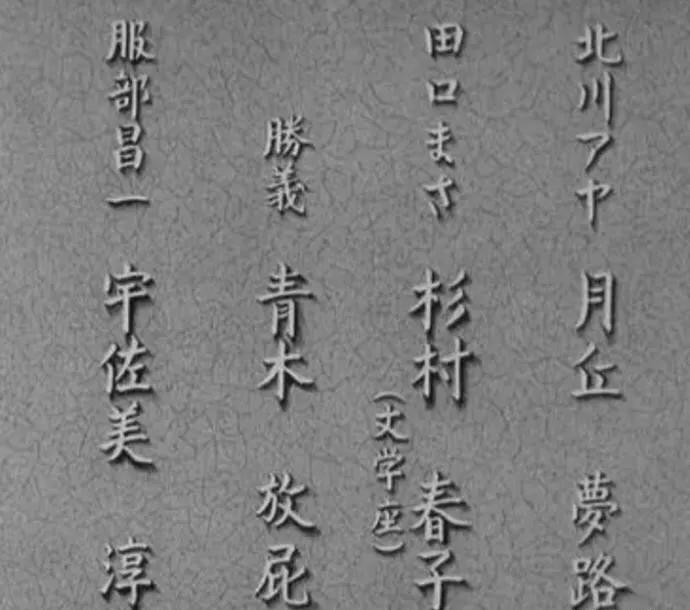 北川アヤ 月丘 夢路
田口まさ 杉村 春子
(文学座)
勝義 青木 放屁
服部昌一 宇佐美 淳